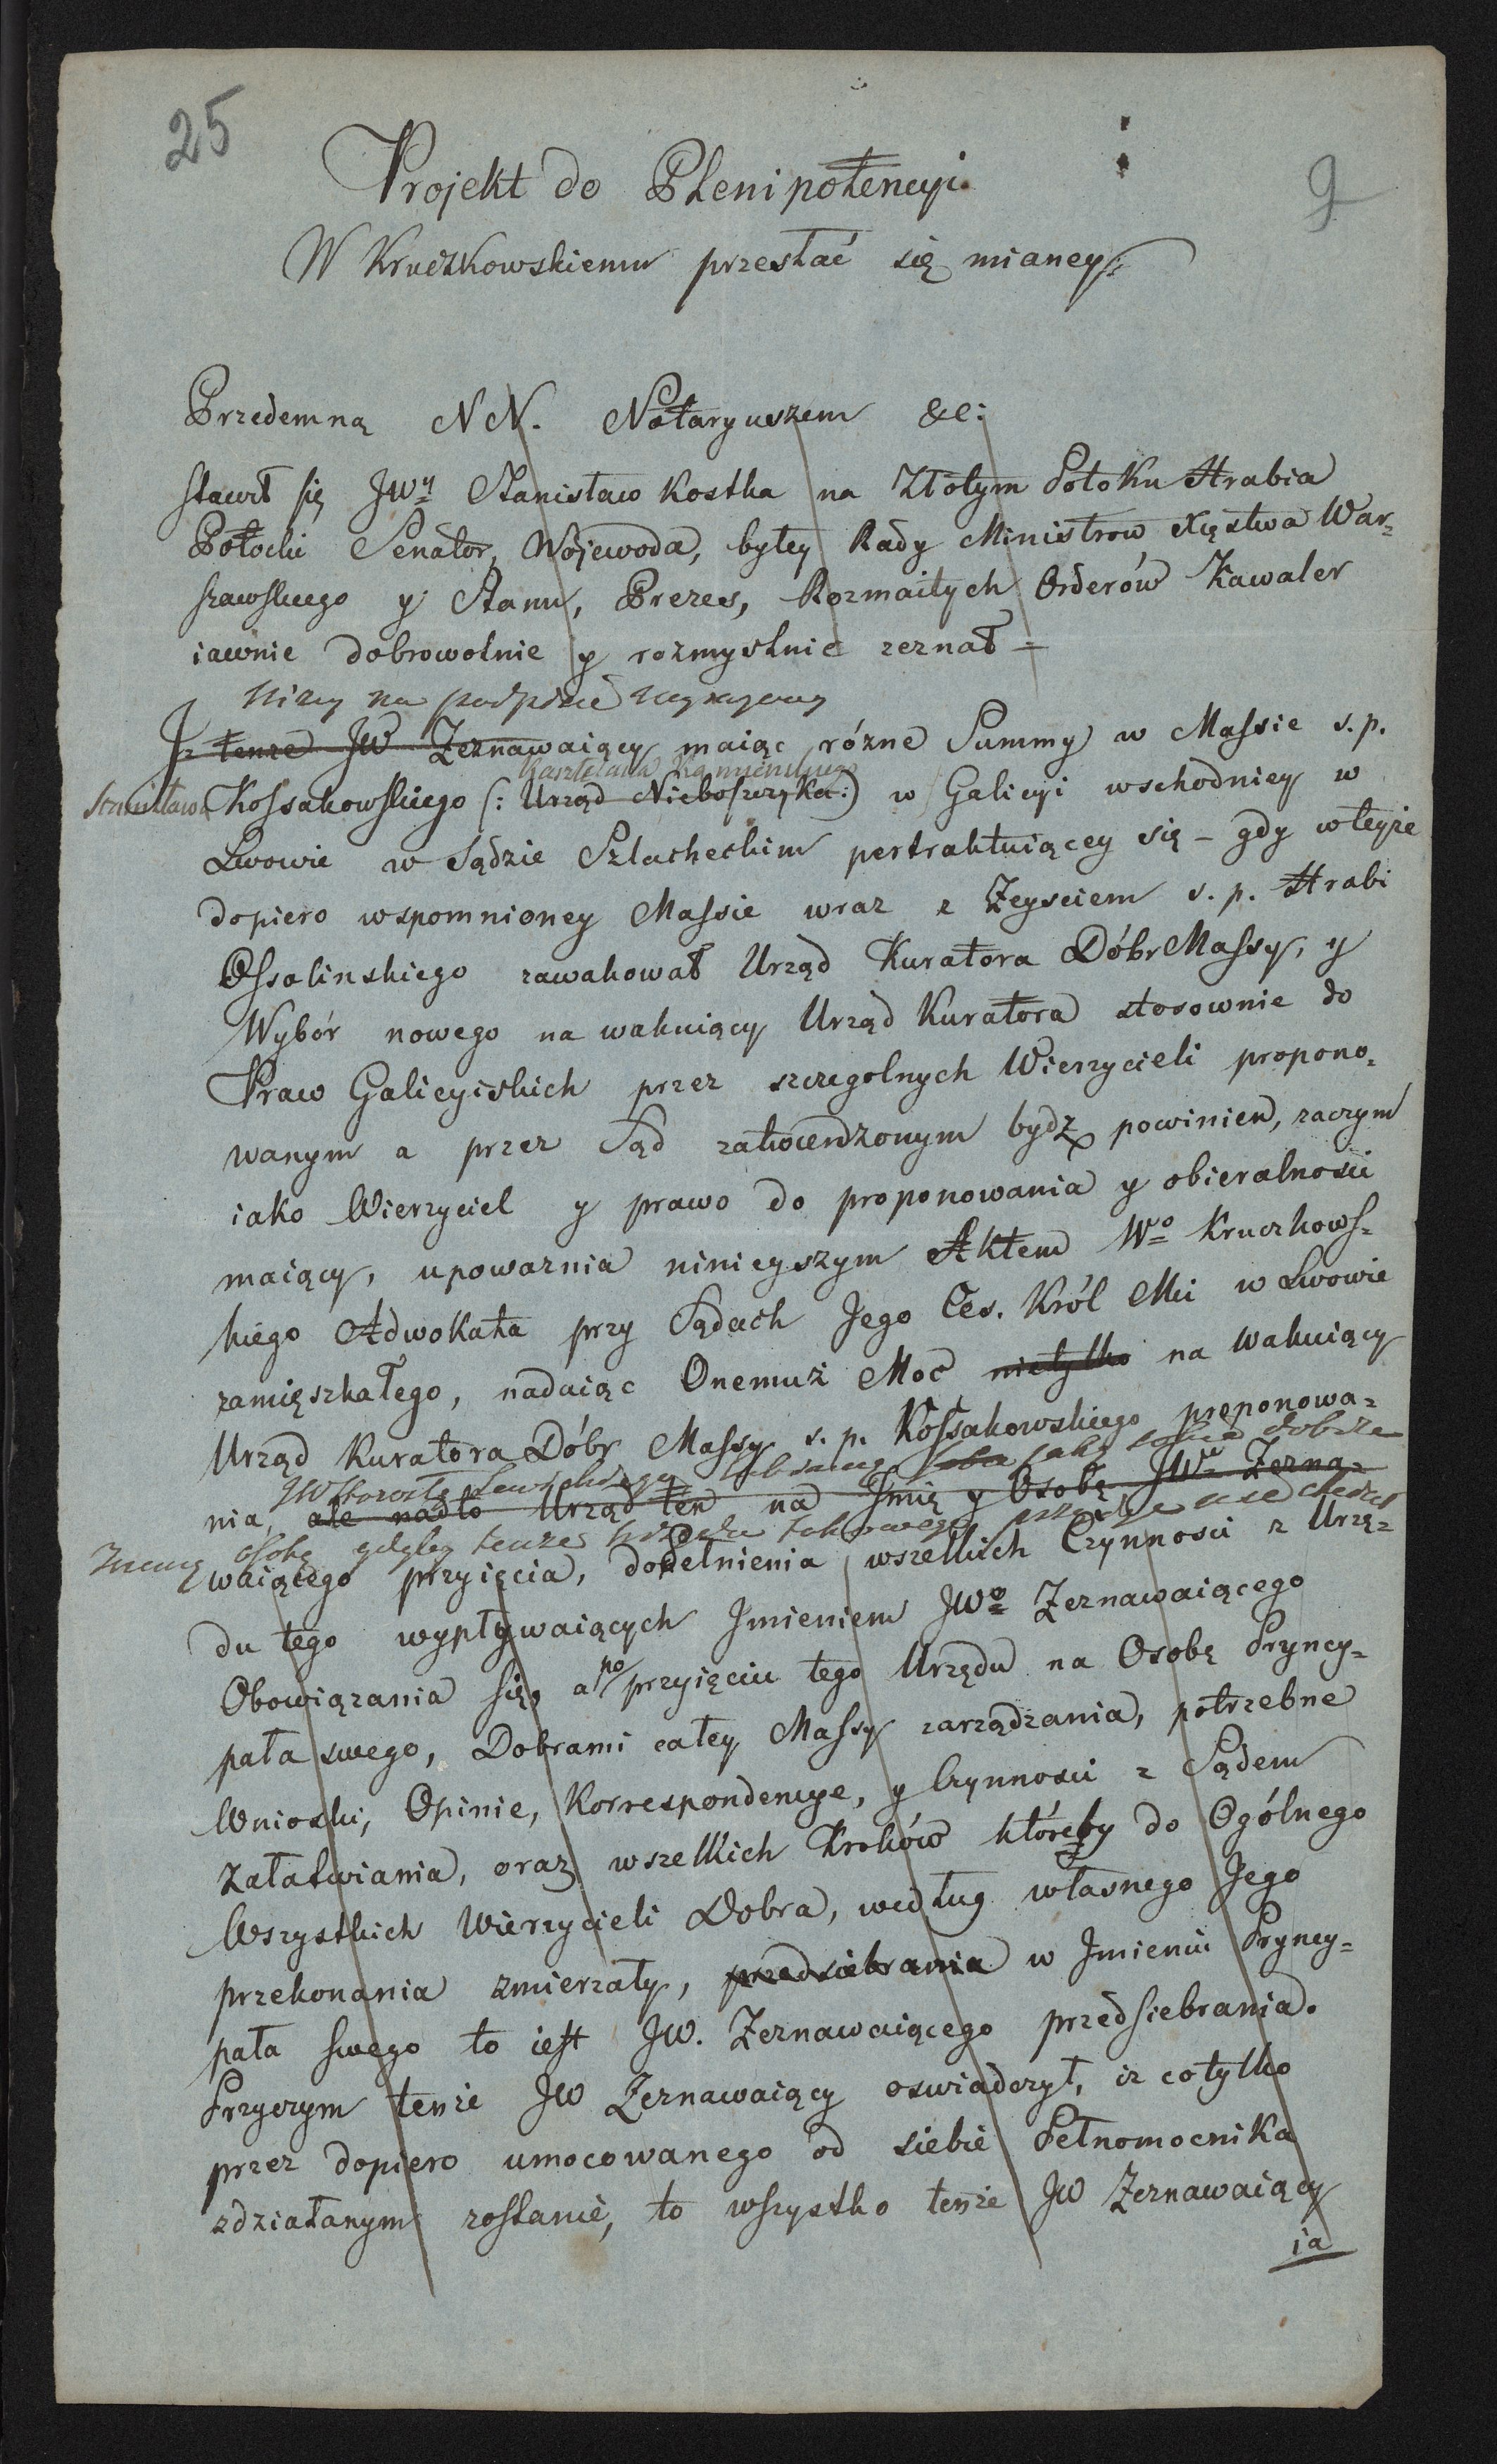 25
9
Projekt do Plenipotencyi
W Kruczkowskiemu przesłać się mianey
Przedemną NN. Notaryuszem &c:
stawił się JWy Stanisław Kostka na Złotym Potoku Hrabia
Potocki Senator, Wojewoda, byłey Rady Ministrow Xięstwa War=
szawskiego y Stanu, Prezes, Rozmaitych Orderów Kawaler
iawnie dobrowolnie y rozmyslnie zeznał =
Niżey na podpisie wyrażony
Iż tenże JW Zeznawaiący maiąc różne Summy w Massie s.p.
Kasztelana Kamienskiego
Stanisława Kossakowskiego (: Urząd Nieboszczyka :) w Galicyi wschodniey w
Lwowie w Sądzie Szlacheckim pertraktuiącey się – gdy w teyże
dopiero wspomnioney Massie wraz z Zeysciem s.p. Hrabi
Ossolinskiego zawakował Urząd Kuratora Dóbr Massy, y
Wybór nowego na wakuiący Urząd Kuratora stosownie do
Praw Galicyiskich przez szczegolnych Wierzycieli propono=
wanym a przez Sąd zatwierdzonym bydz powinien, zaczym
iako Wierzyciel y prawo do proponowania y obieralności
maiący, upowaznia ninieyszym Aktem Wo Kruczkows=
kiego Adwokata przy Sądach Jego Ces. Król Mci w Lwowie
zamięszkałego, nadaiąc Onemuż Moc nietylko na wakuiący
Urząd Kuratora Dóbr Massy s.p. Kossakowskiego proponowa=
JW jako sobie dobrze
nia, ale nadto Urząd ten na Imię y Osobę JWo Zezna=
Znaną osobę gdyby tenże Urzędu takowego przyjąć nie chciał
waiącego przyięcia, dopełnienia wszelkich Czynności z Urzę=
du tego wypływaiących Imieniem JWo Zeznawaiącego
Obowiązania się, a po przyięciu tego Urzędu na Osobę Pryncy=
pała swego, Dobrami całey Massy zarządzania, potrzebne
Wnioski, Opinie, Korrespondencye, y Czynności z Sądem
Załatwiania, oraz wszelkich Kroków któreby do Ogólnego
Wszystkich Wierzycieli Dobra, według własnego Jego
przekonania zmierzały, przedsiebrania w Imieniu Pryncy=
pała swego to iest JW. Zeznawaiącego przedsiebrania.
Przyczym tenże JW Zeznawaiący oswiadczył, iż cotylko
przez dopiero umocowanego od siebie Pełnomocnika
zdziałanym zostanie, to wszystko tenże JW Zeznawaiący
ia